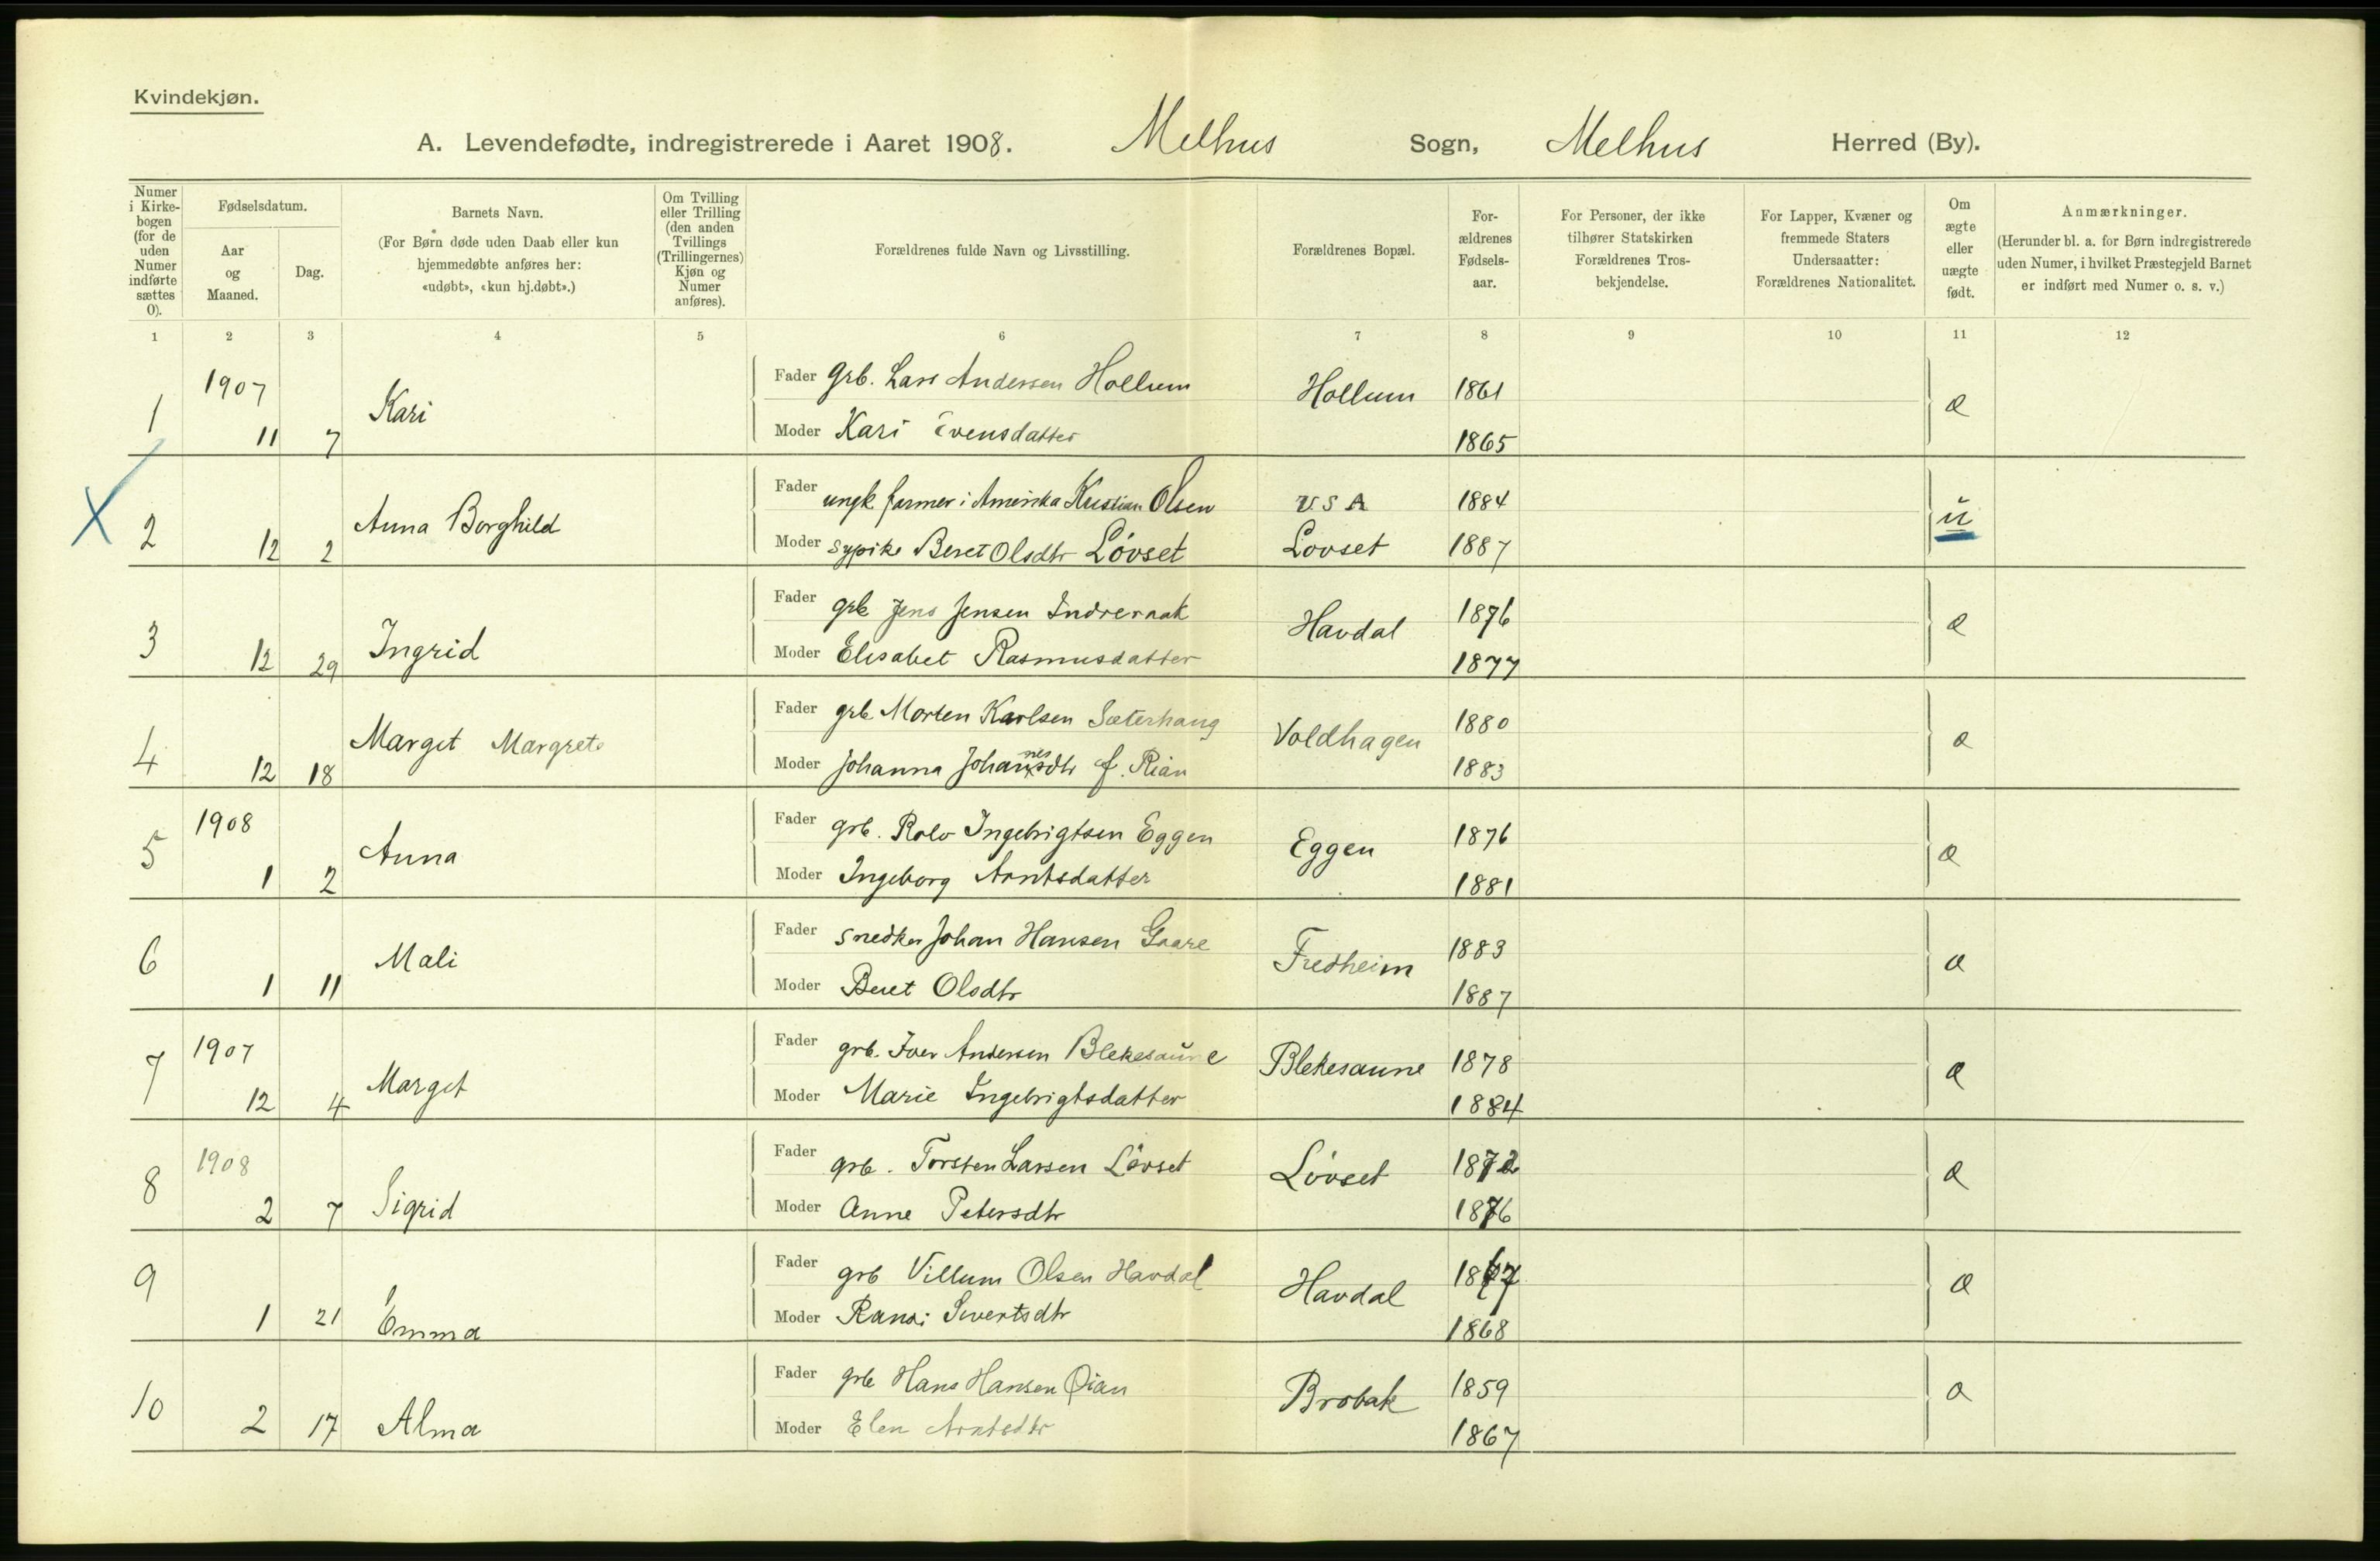 Kvindekjøn.
A. Levendefødte, indregistrerede i Aaret 1908. Melhus Sogn, Melhus Herred (By).
Numer i Kirke-bogen (for de uden Numer indførte sættes 0).
Fødselsdatum.
Aar og Maaned.
Dag.
Barnets Navn.
(For Børn døde uden Daab eller kun
hjemmedøbte anføres her:
«udøbt», «kun hj.døbt».)
Om Tvilling
eller Trilling
(den anden
Tvillings
(Trillingernes)
Kjøn og
Numer
anføres).
Forældrenes fulde Navn og Livsstilling.
Forældrenes Bopæl.
For-
ældrenes
Fødsels-
aar.
For Personer, der ikke
tilhører Statskirken
Forældrenes Tros-
bekjendelse.
For Lapper, Kvæner og
fremmede Staters
Undersaatter:
Forældrenes Nationalitet.
Om
ægte
eller
uægte
født.
Anmærkninger.
(Herunder bl. a. for Børn indregistrerede
uden Numer, i hvilket Præstegjeld Barnet
er indført med Numer o. s. v.)
1 2 3 4 5 6 7 8 9 10 11 12
1907 Fader grb. Lars Andersen Hollum Hollum 1861
1 11 7 Kari Moder Kari Evensdatter 1865 æ
Fader ungk. farmer i Amerika Kristian Olsen U S A 1884
X 2 12 2 Anna Borghild Moder sypike Beret Olsdtr Løvset Lovset 1887 u
Fader grb Jens Jensen Indreraak Havdal 1876
3 12 29 Ingrid Moder Elisabet Rasmusdatter 1877 æ
Fader grb Morten Karlsen Sæterhaug Voldhagen 1880
4 12 18 Marget Margrete Moder Johanna Johannesdtr f. Rian 1883 æ
1908 Fader grb. Rolv Ingebrigtsen Eggen Eggen 1876
5 1 2 Anna Moder Ingeborg Arntsdatter 1881 æ
Fader snedker Johan Hansen Gaare Fredheim 1883
6 1 11 Mali Moder Beret Olsdtr 1887 æ
1907 Fader grb. Iver Andersen Blekesaune Blekesaune 1878
7 12 4 Marget Moder Marie Ingebrigtsdatter 1884 æ
1908 Fader grb. Torsten Larsen Løvset Løvset 1872
8 2 7 Sigrid Moder Anne Petersdtr 1876 æ
Fader grb Villum Olsen Havdal Havdal 1867
9 1 21 Emma Moder Randi Sivertsdtr 1868 æ
Fader grb Hans Hansen Øian Brobak 1859
10 2 17 Alma Moder Elen Arntsdtr 1867 æ